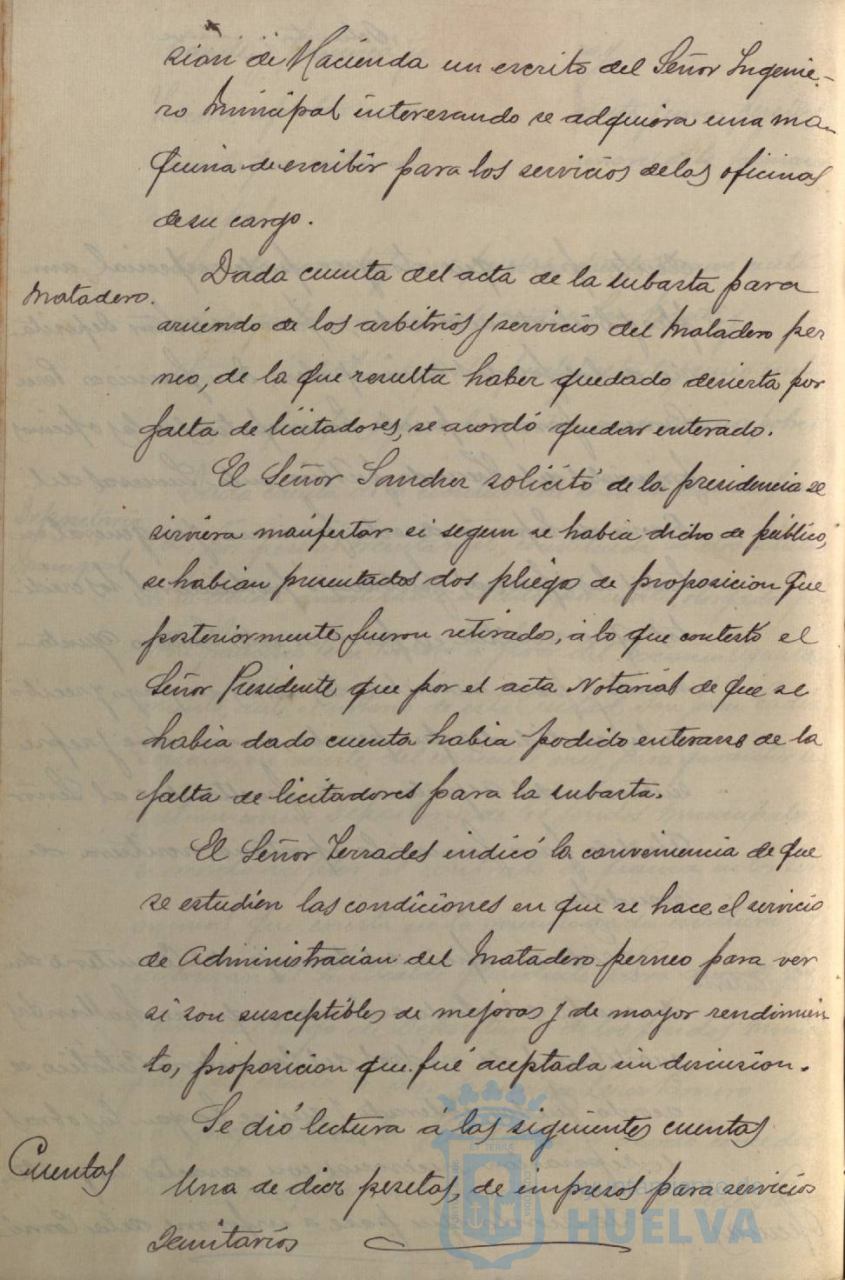 sion de Hacienda un escrito del Señor Ingenie-
ro Municipal interesando se adquiera una ma-
quina de escribir para los servicios de las oficinas
de su cargo.
Matadero.
Dada cuenta del acta de la subasta para
arriendo de los arbitrios y servicios del Matadero per
neo, de la que resulta haber quedado desierta por
falta de licitadores, se acordó quedar enterado.
El Señor Sanchez solicitó de la presidencia se
sirviera manifestar si segun se habia dicho de público,
se habian presentados dos pliegos de proposicion que
posteriormente fueron retirados, á lo que contestó el
Señor Presidente que por el acta Notarial de que se
habia dado cuenta habia podido enterarse de la
falta de licitadores para la subasta.
El Señor Terrades indicó la conveniencia de que
se estudien las condiciones en que se hace el servicio
de Administracion del Matadero perneo para ver
si son susceptibles de mejoras y de mayor rendimien
to, proposicion que fué aceptada sin discusion.
Se dió lectura á las siguientes cuentas
Cuentas
Una de diez pesetas, de impresos para servicios
Sanitarios
HUELVA